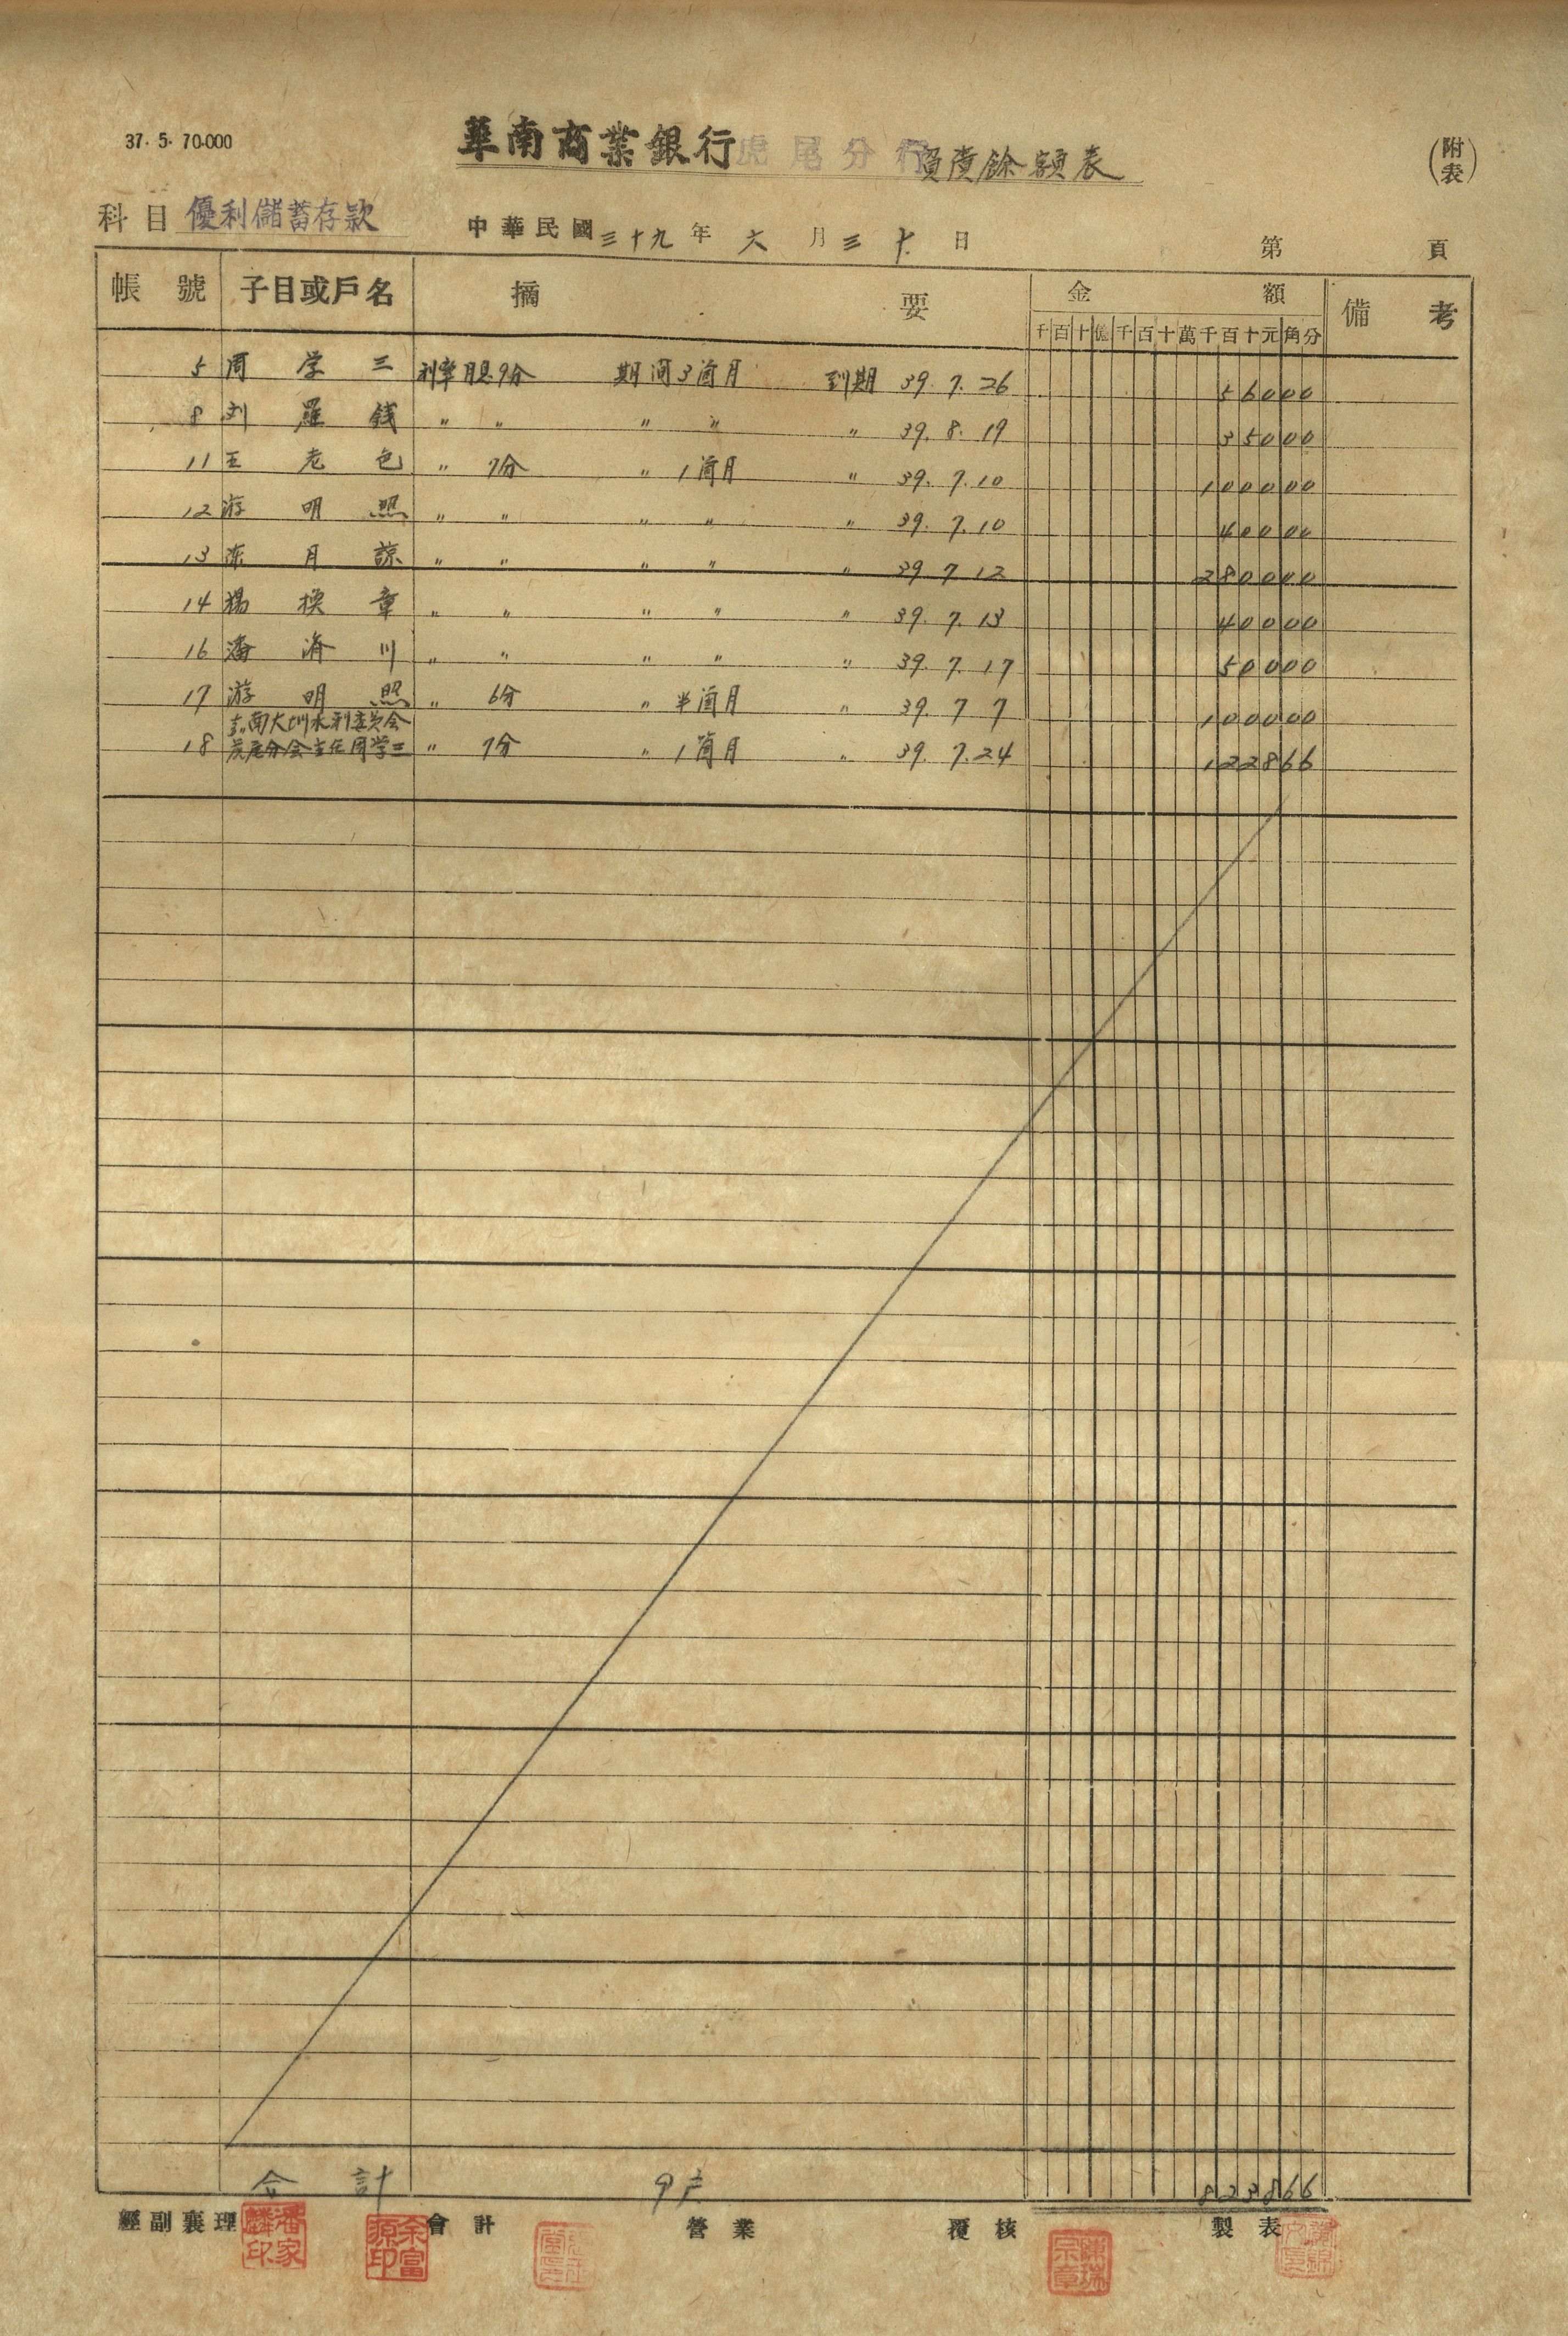 37.5.70.000
華南商業銀行虎尾分行負債餘額表
(附表)
科目 優利儲蓄存款
中華民國三十九年六月三十日
第 頁
帳號 子目或戶名 摘要 金額 備考
千百十億千百十萬千百十元角分
5 周学三 利率月息9分 期间3箇月 到期 39.7.26 56000
8 刘羅錢 〃 〃 〃 〃 〃 39.8.19 35000
11 王老色 〃 7分 〃 1箇月 〃 39.7.10 100000
12 游明照 〃 〃 〃 〃 〃 39.7.10 40000
13 月諒 〃 〃 〃 〃 〃 39 7 12 280000
14 楊 章 〃 〃 〃 〃 〃 39.7.13 40000
16 潘海川 〃 〃 〃 〃 〃 39.7.17 50000
17 游明照 〃 6分 〃 半箇月 〃 39.7 7 100000
嘉南大圳水利委員会
18 虎尾分会主任周学三 〃 7分 〃 1箇月 〃 39.7.24 122866
合計 9户 823866
經副襄理 會計 營業 覆核 製表
潘家麟印
余富源印
陳瑞宗章